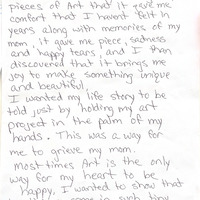 pieces of Art that it gave me
comfort that I havent felt in
years along with memories of my
mom, it gave me piece, sadness
and happy tears, and I than
discovered that it brings me
joy to make something unique
and beautiful.
I wanted my life story to be
told just by holding my art
project in the palm of my
hands. This was a way for
me to grieve my mom.
most times Art is the only
way for my heart to be
happy, I wanted to show that
come in such tiny